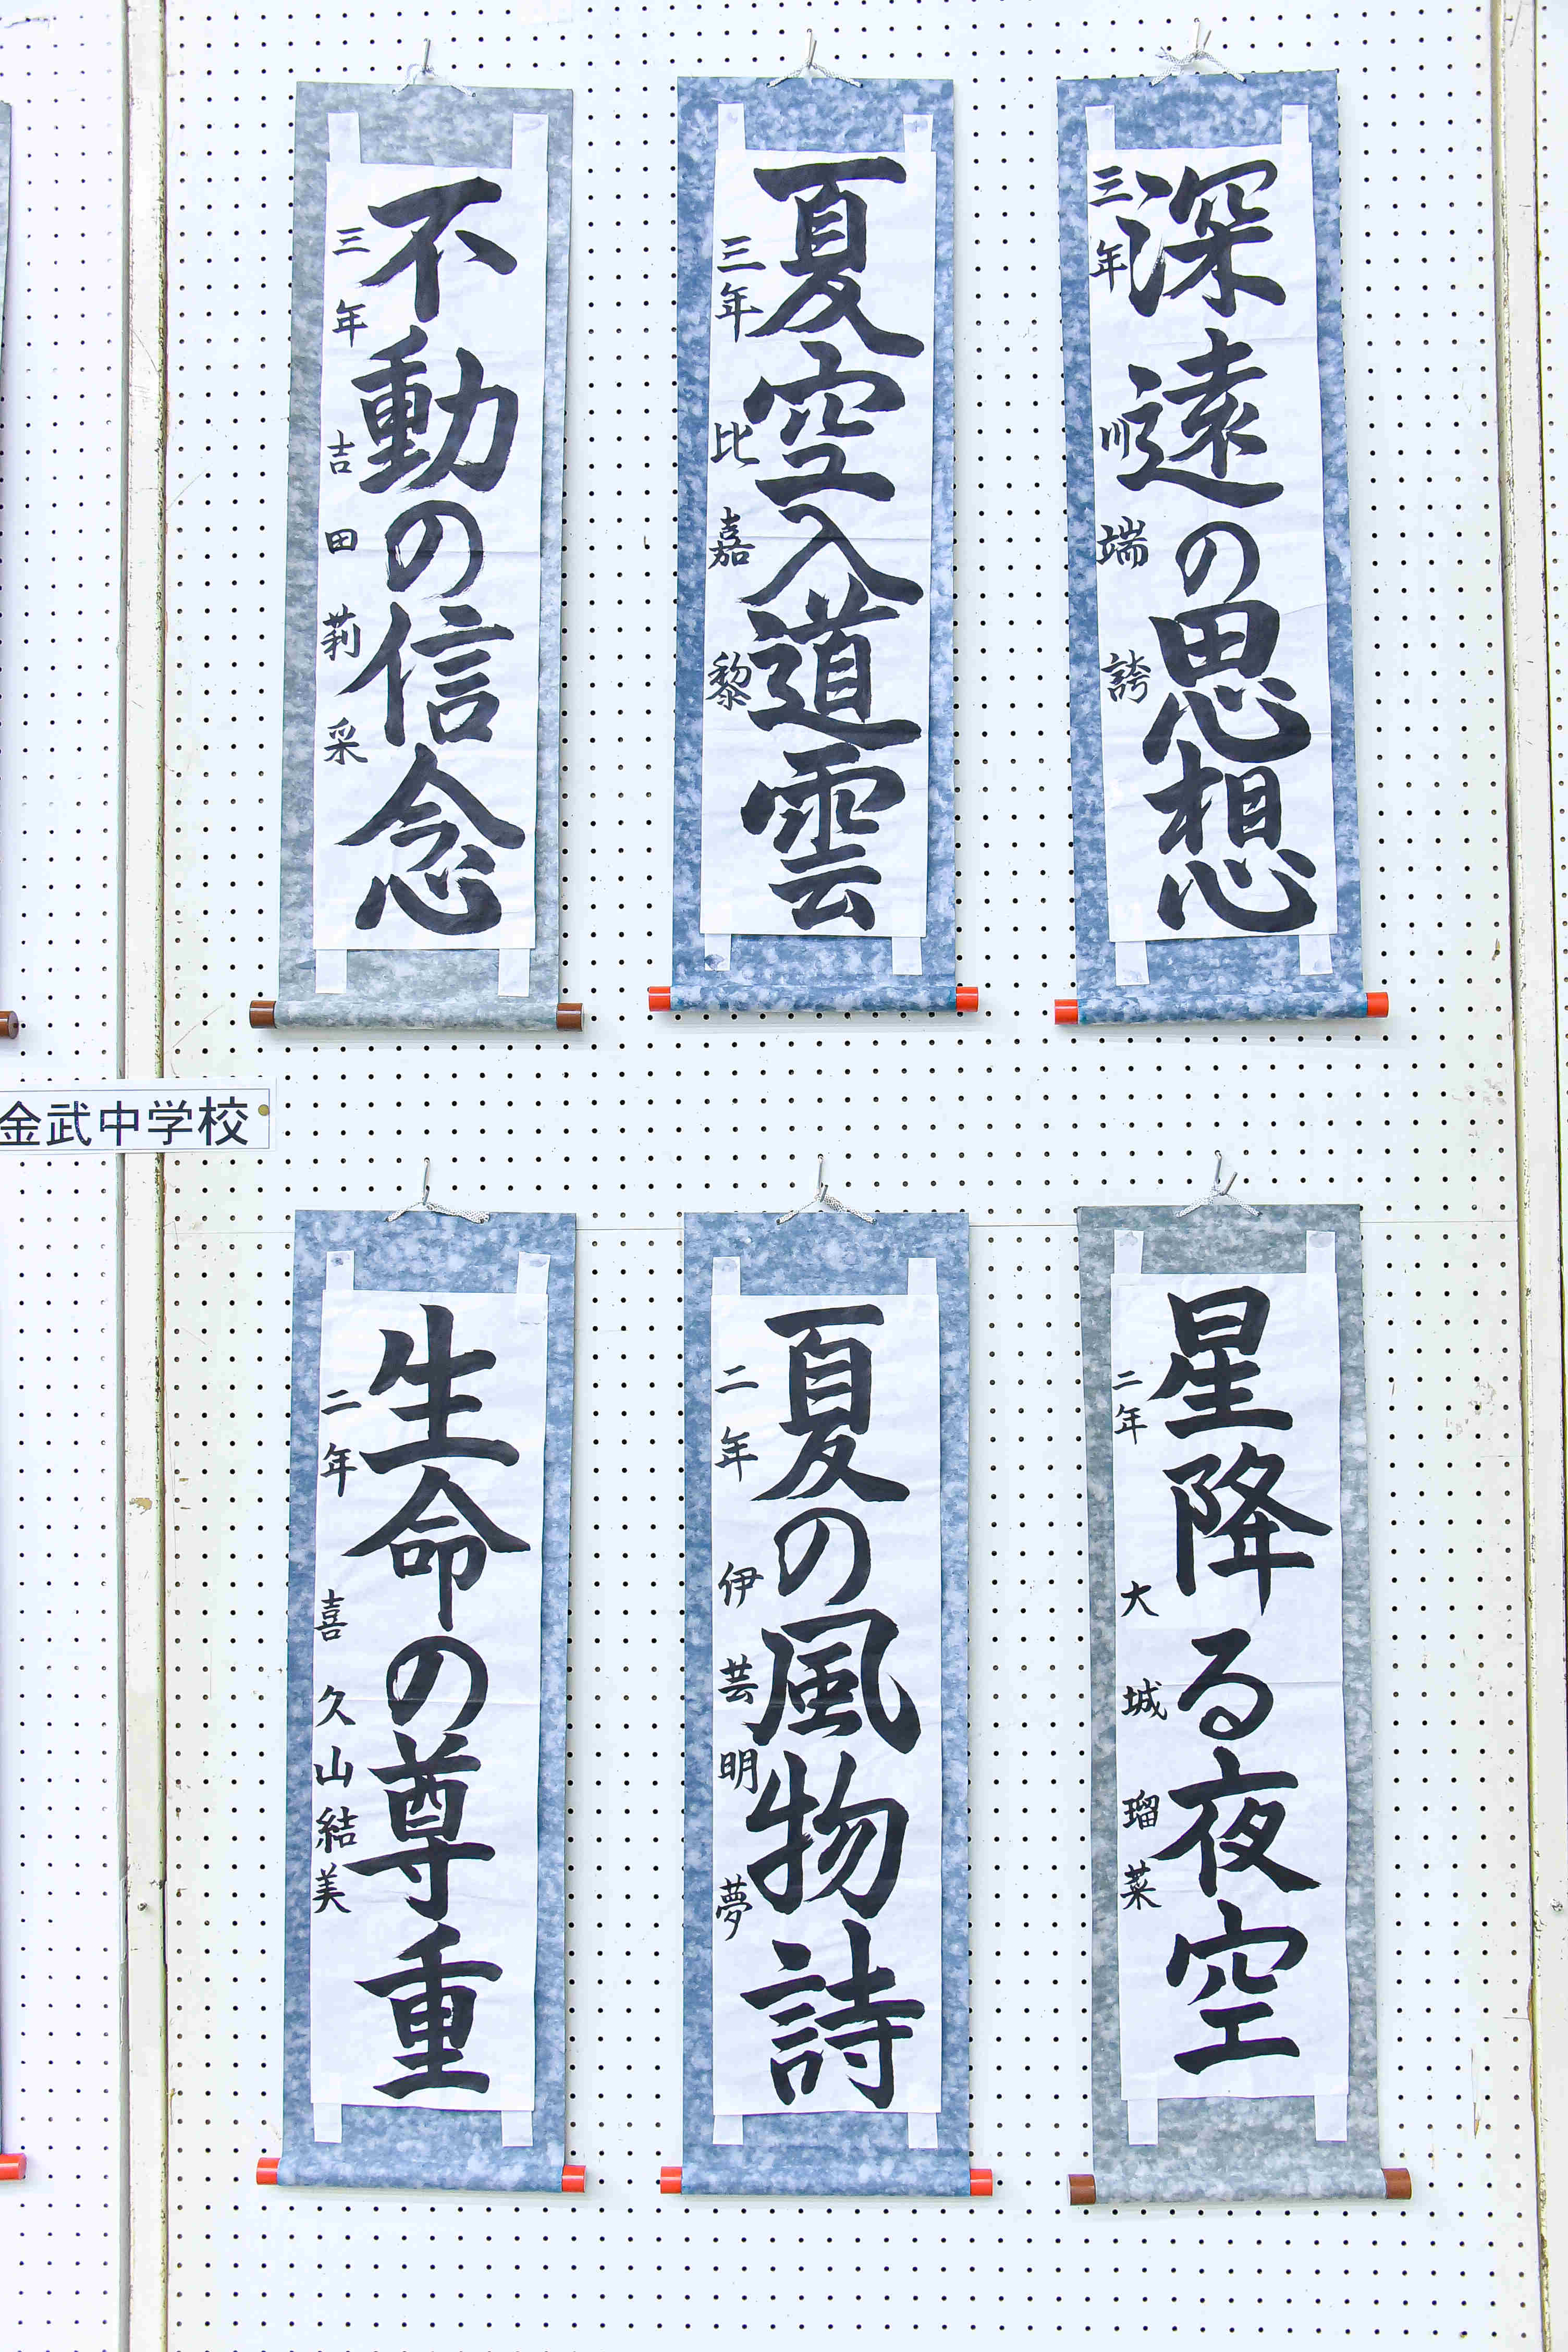 深遠の思想
三年 順端 誇
夏空入道雲
三年 比嘉 黎
不動の信念
三年 吉田 莉采
金武中学校
星降る夜空
二年 大城 瑠菜
夏の風物詩
二年 伊芸 明夢
生命の尊重
二年 喜久山結美